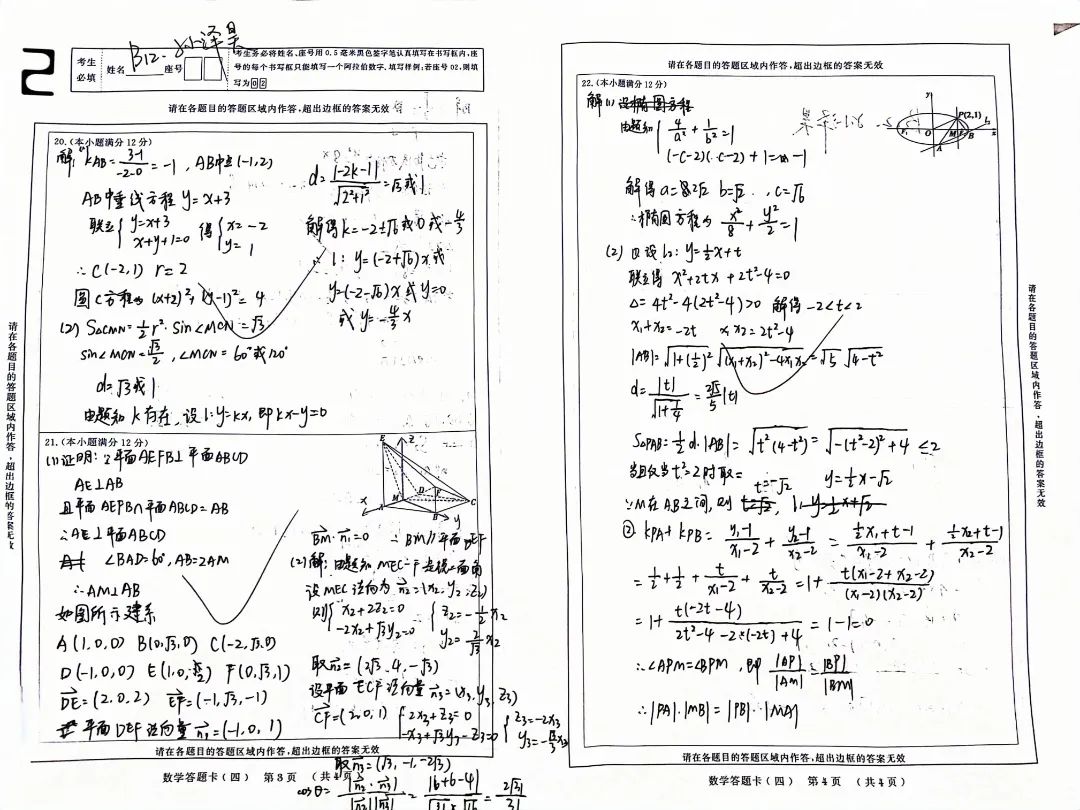 2
考生必填
姓名 B12-
座号
考生务必将姓名、座号用0.5毫米黑色签字笔认真填写在书写框内,座号的每个书写框只能填写一个阿拉伯数字,填写样例:若座号02,则填写为02
请在各题目的答题区域内作答,超出边框的答案无效
20.(本小题满分12分)
解: (1) kAB=(3-1)/(-2-0)=-1, AB中点(-1,2)
AB中垂线方程 y=x+3
联立{y=x+3 x+y+1=0 得{x=-2 y=1
∴C(-2,1) r=2
圆C方程为(x+2)²+(y-1)²=4
(2) S△CMN=½r²·sin∠MCN=√3
sin∠MCN=√3/2, ∠MCN=60°或120°
d=√3或1
由题知k存在,设l:y=kx,即kx-y=0
d=|-2k-1|/√(2²+1²)=√3或1
解得k=-2±√6或0或-4/3
∴l: y=(-2+√6)x或
y=(-2-√6)x或y=0
或y=-4/3 x
21.(本小题满分12分)
(1)证明:∵平面AEFB⊥平面ABCD
AE⊥AB
且平面AEFB∩平面ABCD=AB
∴AE⊥平面ABCD
∠BAD=60°,AB=2AM
∴AM⊥AB
如图所示建系
A(1,0,0) B(0,√3,0) C(-2,√3,0)
D(-1,0,0) E(1,0,2) F(0,√3,1)
DE=(2,0,2) EF=(-1,√3,-1)
平面DEF法向量n₁=(-1,0,1)
E z x A M D F B y C
BM·n₁=0 ∴BM∥平面DEF
(2)解:由题知,MEC-F是锐二面角
设MEC法向为n₂=(x₂,y₂,z₂)
则{x₂+2z₂=0 -2x₂+√3y₂=0 {z₂=-½x₂ y₂=2/√3 x₂
取n₂=(2√3,4,-√3)
设平面ECF法向量n₃=(x₃,y₃,z₃)
CF=(2,0,1) {2x₃+z₃=0 -x₃+√3y₃-z₃=0 {z₃=-2x₃ y₃=-√3/3 x₃
取n₃=(√3,-1,-2√3)
cosθ=|n₂·n₃|/|n₂||n₃|=|6+6-4|/√31×√16=2√31/31
请在各题目的答题区域内作答,超出边框的答案无效
数学答题卡(四) 第3页 (共4页)
请在各题目的答题区域内作答,超出边框的答案无效
22.(本小题满分12分)
解(1)设椭圆方程
由题知{4/a²+1/b²=1
(-c-2)(c-2)+1=-1
解得a=2√2 b=√2, c=√6
∴椭圆方程为x²/8+y²/2=1
y P(2,1) l₁ F₁ O M F₂ B x A
(2) ①设l₁:y=½x+t
联立得 x²+2tx+2t²-4=0
Δ=4t²-4(2t²-4)>0 解得-2<t<2
x₁+x₂=-2t x₁x₂=2t²-4
|AB|=√(1+(½)²)√((x₁+x₂)²-4x₁x₂)=√5 √(4-t²)
d=|t|/√(1+¼)=2√5/5|t|
S△PAB=½d·|AB|=√(t²(4-t²))=√(-(t²-2)²+4)≤2
当且仅当t²=2时取=
∵M在AB之间,则 t=-√2 y=½x-√2
② kPA+kPB=(y₁-1)/(x₁-2)+(y₂-1)/(x₂-2)=(½x₁+t-1)/(x₁-2)+(½x₂+t-1)/(x₂-2)
=½+½+t/(x₁-2)+t/(x₂-2)=1+t(x₁-2+x₂-2)/(x₁-2)(x₂-2)
=1+t(-2t-4)/(2t²-4-2×(-2t)+4)=1-1=0
∴∠APM=∠BPM,即|AP|/|AM|=|BP|/|BM|
∴|PA|·|MB|=|PB|·|MA|
请在各题目的答题区域内作答,超出边框的答案无效
数学答题卡(四) 第4页 (共4页)
请在各题目的答题区域内作答,超出边框的答案无效
请在各题目的答题区域内作答,超出边框的答案无效